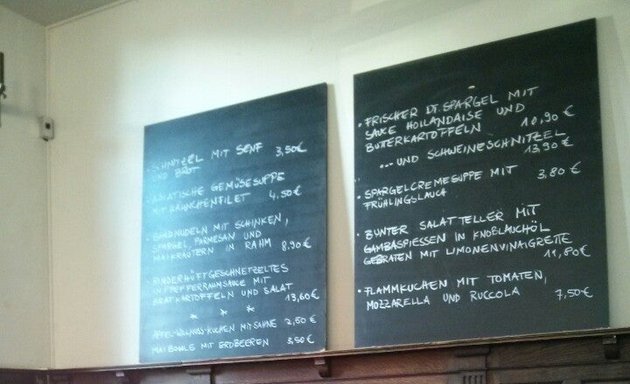 SCHNITZEL MIT SENF
UND BROT 3,50€
ASIATISCHE GEMÜSESUPPE
MIT KANINCHENFILET 4,50€
BANDNUDELN MIT SCHINKEN,
SPARGEL PARMESAN UND
MAIKRÄUTERN IN RAHM 8,90€
RINDERHÜFTGESCHNETZELTES
IN PFEFFERRAHMSAUCE MIT
BRATKARTOFFELN UND SALAT
13,60€
* * *
APFEL-WALNUSS-KUCHEN MIT SAHNE 2,80€
MAIBOWLE MIT ERDBEEREN 3,50€
• FRISCHER DT. SPARGEL MIT
SAUCE HOLLANDAISE UND
BUTERKARTOFFELN 10,90€
... UND SCHWEINESCHNITZEL
13,90€
• SPARGELCREMESUPPE MIT 3,80€
FRÜHLINGSLAUCH
• BUNTER SALATTELLER MIT
GAMBASPIESSEN IN KNOBLAUCHÖL
GEBRATEN MIT LIMONENVINAIGRETTE
11,80€
• FLAMMKUCHEN MIT TOMATEN,
MOZZARELLA UND RUCCOLA 7,50€